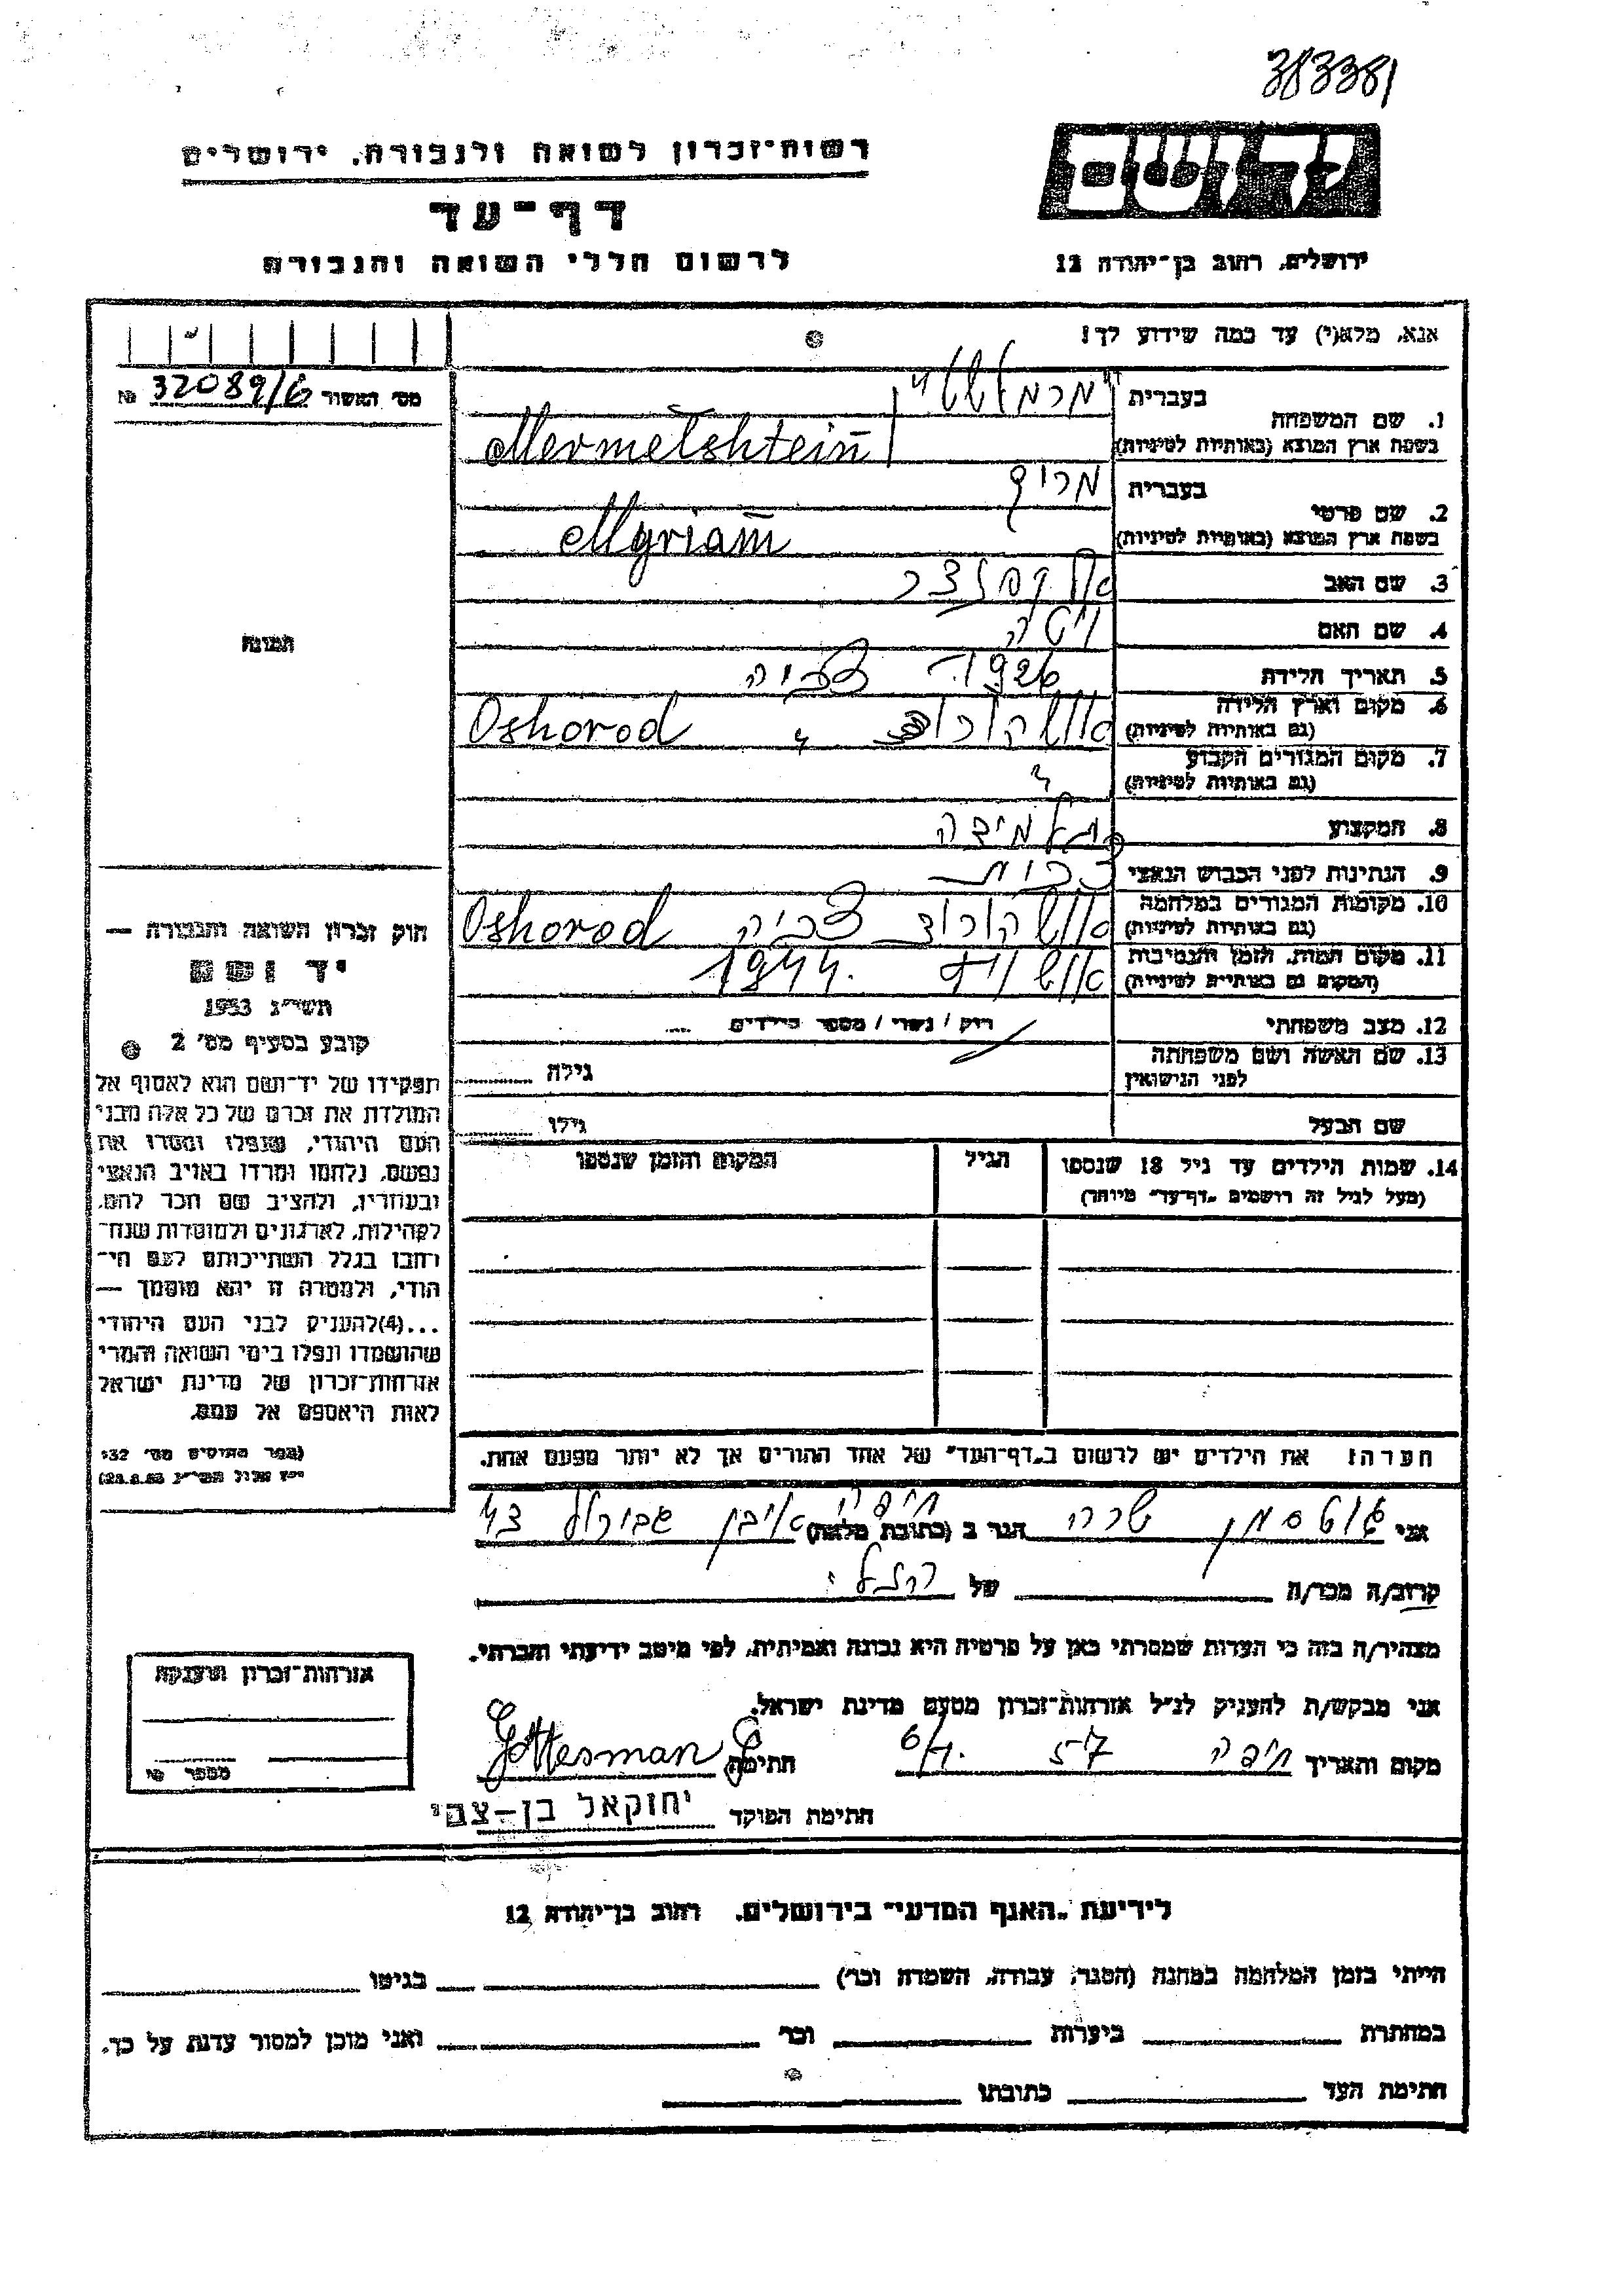 383381
רשות-זכרון לשואה ולגבורה, ירושלים
דף-עד
לרשום חללי השואה והגבורה
יד ושם
ירושלים, רחוב בן-יהודה 12
אנא, מלא(י) עד כמה שידוע לך!
מס' האשור 32089/6 №
1. שם המשפחה
בעברית מרמלשטיין
בשפת ארץ המוצא (באותיות לטיניות) Mermelshtein
2. שם פרטי
בעברית מרים
בשפת ארץ המוצא (באותיות לטיניות) Myriam
3. שם האב
4. שם האם
5. תאריך הלידה 1926
6. מקום וארץ הלידה
(גם באותיות לטיניות) Oshorod
7. מקום המגורים הקבוע
(גם באותיות לטיניות) "
8. המקצוע תלמידה
9. הנתינות לפני הכבוש הנאצי
10. מקומות המגורים במלחמה
(גם באותיות לטיניות) Oshorod
11. מקום המות, הזמן והנסיבות
(המקום גם באותיות לטיניות) אושוויץ 1944.
12. מצב משפחתי רווק / נשוי / מספר הילדים
13. שם האשה ושם משפחתה
לפני הנישואין גילה
שם הבעל גילו
14. שמות הילדים עד גיל 18 שנספו הגיל המקום והזמן שנספו
(מעל לגיל זה רושמים "דף-עד" מיוחד)
הערה: את הילדים יש לרשום ב"דף-העד" של אחד ההורים אך לא יותר מפעם אחת.
תמונה
חוק זכרון השואה והגבורה —
יד ושם
תשי"ג 1953
קובע בסעיף מס' 2
תפקידו של יד-ושם הוא לאסוף אל
המולדת את זכרם של כל אלה מבני
העם היהודי, שנפלו ומסרו את
נפשם, נלחמו ומרדו באויב הנאצי
ובעוזריו, ולהציב שם וזכר להם,
לקהילות, לארגונים ולמוסדות שנח-
רבו בגלל השתייכותם לעם הי-
הודי, ולמטרה זו יהא מוסמך —
...(4)להעניק לבני העם היהודי
שהושמדו ונפלו בימי השואה והמרי
אזרחות-זכרון של מדינת ישראל
לאות היאספם אל עמם.
(ספר החוקים מס' 132
י"ז אלול תשי"ג 28.8.53)
אני גוטסמן שרה הגר ב (כתובת מלאה) חיפה אבן גבירול 43
קרוב/ה מכר/ה של
מצהיר/ה בזה כי העדות שמסרתי כאן על פרטיה היא נכונה ואמיתית, לפי מיטב ידיעתי והכרתי.
אני מבקש/ת להעניק לנ"ל אזרחות-זכרון מטעם מדינת ישראל.
מקום ותאריך חיפה 57 חתימה Gottesman
חתימת הפוקד יחזקאל בן-צבי
אזרחות-זכרון הוענקה
מספר
לידיעת "האגף המדעי" בירושלים, רחוב בן-יהודה 12
הייתי בזמן המלחמה במחנה (הסגר, עבודה, השמדה וכו') בגיטו
במחתרת ביערות וכו' ואני מוכן למסור עדות על כך.
חתימת העד כתובתו